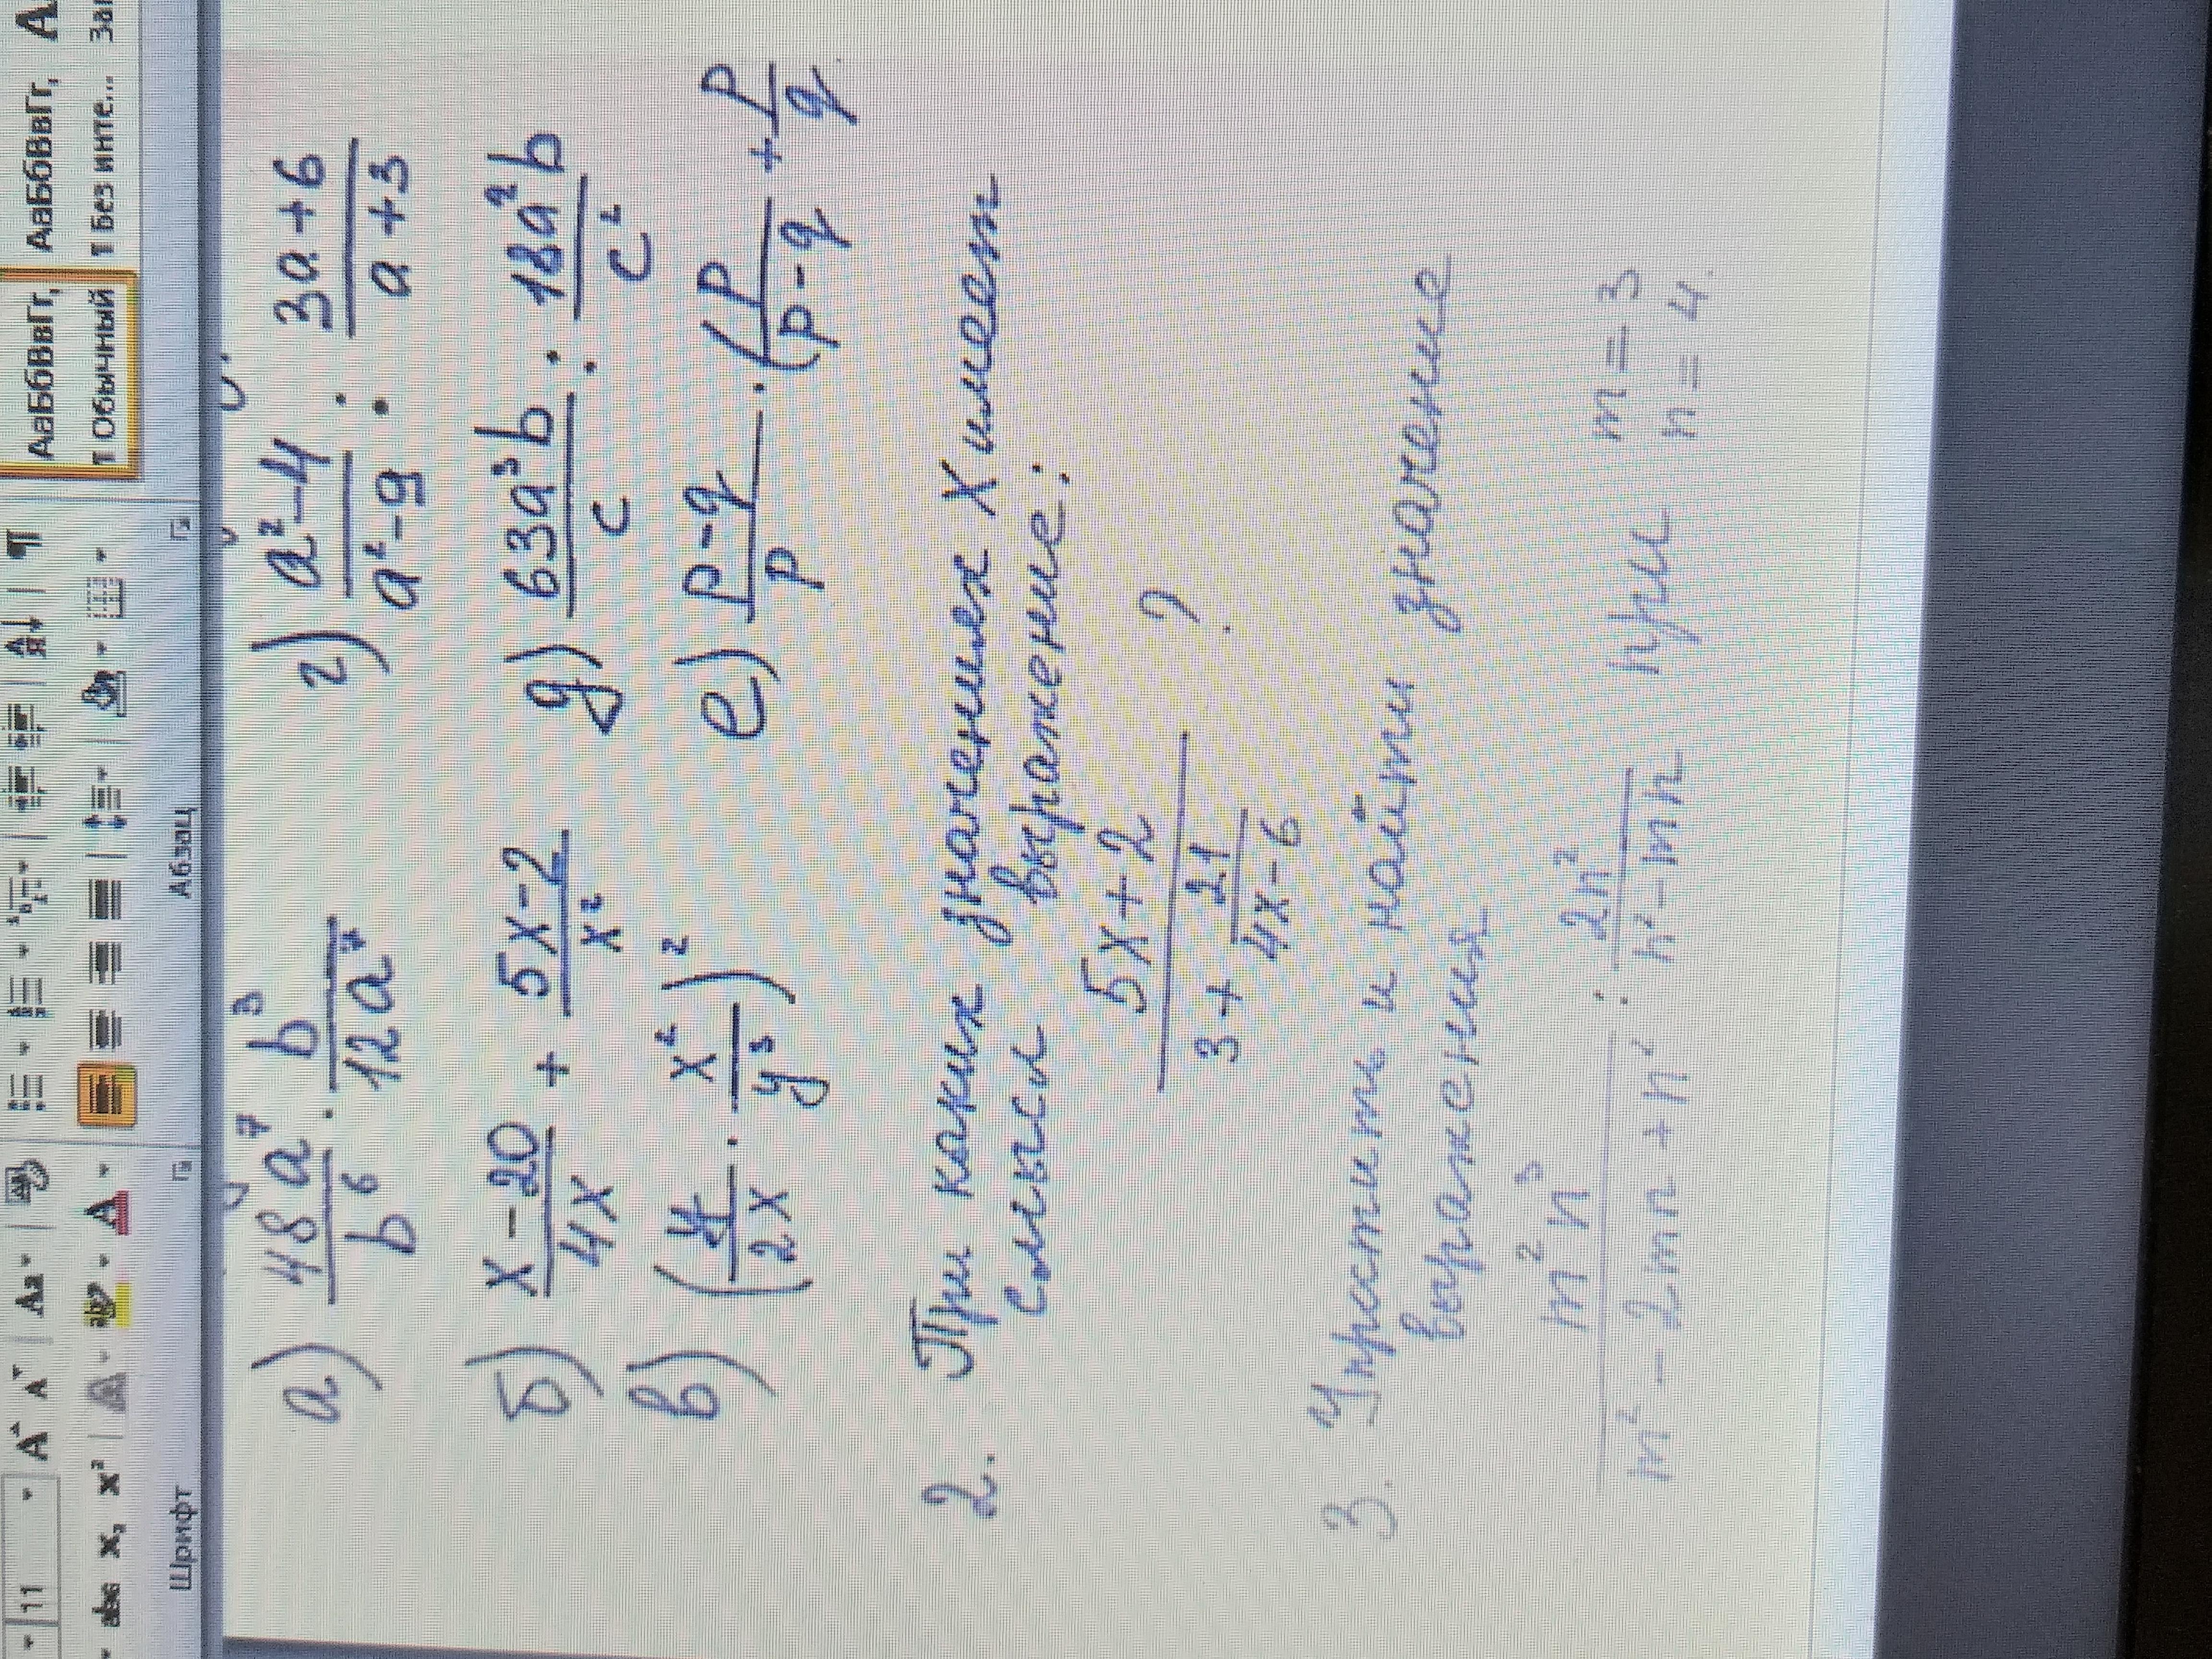 11
Шрифт
Абзац
АаБбВвГг,
АаБбВвГг,
¶ Обычный
¶ Без инте...
а) 48a⁷/b⁶ · b³/12a⁷
г) a²-4/a²-9 : 3a+6/a+3
б) x-20/4x + 5x-2/x²
д) 63a³b/c : 18a²b/c²
в) (y/2x · x²/y³)²
е) p-q/p · (p/p-q + p/q
2. При каких значениях X имеет
смысл выражение:
5x+2/(3+21/(4x-6)) ?
3. Упростить и найти значение
выражения
m²n³/(m²-2mn+n²) : 2n²/(n²-mn) при m=3
n=4.